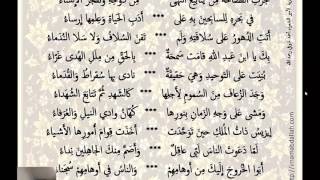 خَرَبَ الفَصَاحَةُ مِنْ يَنَابِيعِ النُّهَى *** مِنْ دَوْحِهِ وَتَفَجَّرَ الإِنْشَاءُ
فِي بَحْرِهِ لِلسَّابِحِينَ بِهِ عَلَى *** أَدَبِ الحَيَاةِ وَعِلْمِهَا إِرْسَاءُ
أَتَتِ الدُّهُورُ عَلَى سُلَافَتِهِ وَلَمْ *** تَفْنَ السُّلَافُ وَلَا سَلَا النُّدَمَاءُ
بِكَ يَا ابْنَ عَبْدِ اللهِ قَامَتْ سَمْحَةٌ *** بِالحَقِّ مِنْ مِلَلِ الهُدَى غَرَّاءُ
بُنِيَتْ عَلَى التَّوْحِيدِ وَهْيَ حَقِيقَةٌ *** نَادَى بِهَا سُقْرَاطُ وَالقُدَمَاءُ
وَجَدَ الزُّعَافَ مِنَ السُّمُومِ لِأَجْلِهَا *** كَالشُّهْدِ ثُمَّ تَتَابَعَ الشُّهَدَاءُ
وَمَشَى عَلَى وَجْهِ الزَّمَانِ بِنُورِهَا *** كُهَّانُ وَادِي النِّيلِ وَالعُرَفَاءُ
إِيزِيسُ ذَاتُ المُلْكِ حِينَ تَوَحَّدَتْ *** أَخَذَتْ قِوَامَ أُمُورِهَا الأَشْيَاءُ
لَمَّا دَعَوْتَ النَّاسَ لَبَّى عَاقِلٌ *** وَأَصَمَّ مِنْكَ الجَاهِلِينَ نِدَاءُ
أَبَوُا الخُرُوجَ إِلَيْكَ مِنْ أَوْهَامِهِمْ *** وَالنَّاسُ فِي أَوْهَامِهِمْ سُجَنَاءُ